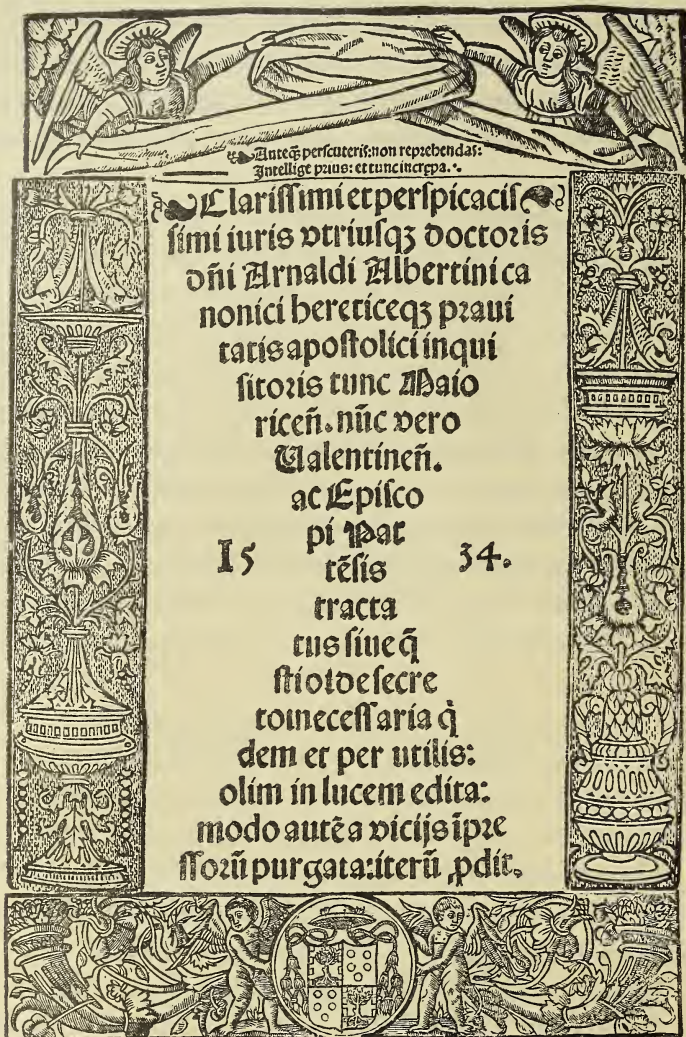 Anteq̃ perscuteris: non reprehendas:
Intellige prius: et tunc increpa.
Clarissimi et perspicacis
simi iuris vtriusqꝫ doctoris
dñi Arnaldi Albertini ca
nonici hereticeqꝫ praui
tatis apostolici inqui
sitoris tunc Maio
riceñ. nũc vero
Ualentineñ.
ac Episco
pi Pac
tẽsis
15 34.
tracta
tus siue q̃
stio de secre
to necessaria q̇
dem et per utilis:
olim in lucem edita:
modo autẽ a vicijs ĩpre
ssorũ purgata: iterũ ꝓdit.